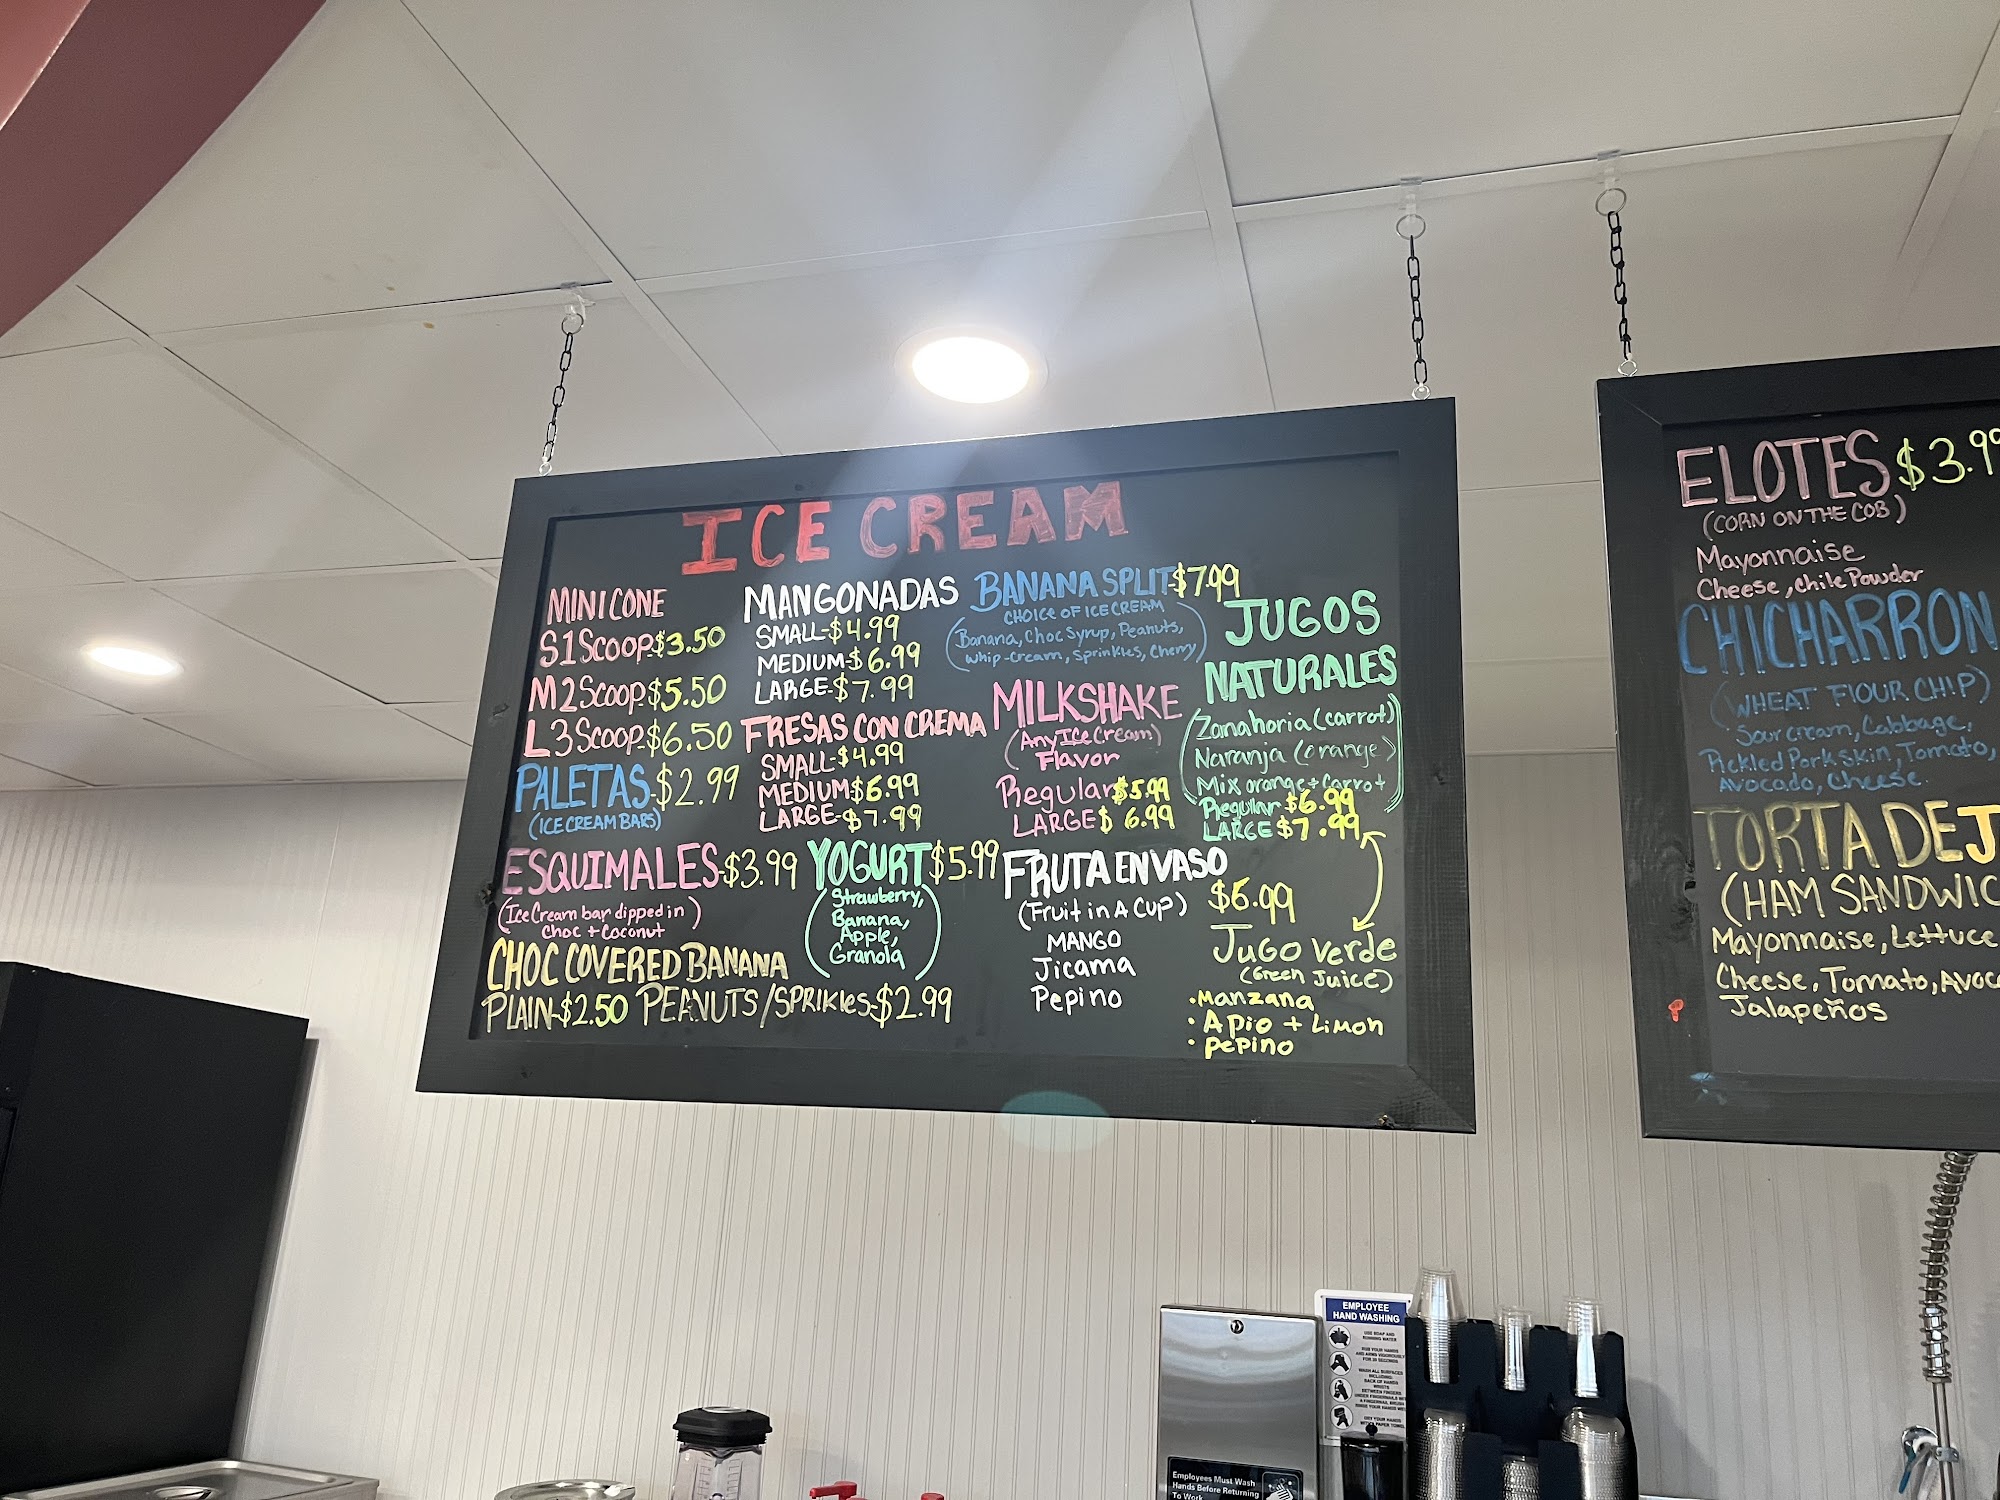 ICE CREAM
MINI CONE
S 1 Scoop-$3.50
M 2 Scoop-$5.50
L 3 Scoop-$6.50
PALETAS-$2.99
(ICE CREAM BARS)
ESQUIMALES-$3.99
(Ice Cream bar dipped in)
choc + coconut
CHOC COVERED BANANA
PLAIN-$2.50 PEANUTS/SPRIKles-$2.99
MANGONADAS
SMALL-$4.99
MEDIUM-$6.99
LARGE-$7.99
FRESAS CON CREMA
SMALL-$4.99
MEDIUM$6.99
LARGE-$7.99
YOGURT$5.99
(Strawberry,
Banana,
Apple,
Granola)
BANANA SPLIT-$7.99
CHOICE OF ICE CREAM
(Banana, Choc Syrup, Peanuts,
whip-cream, Sprinkles, Cherry)
MILKSHAKE
(Any Ice Cream)
Flavor
Regular$5.99
LARGE$ 6.99
FRUTA EN VASO
(Fruit in A Cup)
$6.99
MANGO
Jicama
Pepino
JUGOS
NATURALES
(Zanahoria (carrot)
Naranja (orange)
Mix orange + carrot
Regular $6.99
LARGE $7.99
Jugo verde
(Green Juice)
•Manzana
• Apio + Limon
• pepino
ELOTES $3.99
(CORN ON THE COB)
Mayonnaise
Cheese, chile Powder
CHICHARRON
(WHEAT FLOUR CHIP)
Sour cream, Cabbage,
Pickled Pork skin, Tomato,
Avocado, Cheese.
TORTA DE J
(HAM SANDWIC
Mayonnaise, Lettuce
Cheese, Tomato, Avoc
Jalapeños
EMPLOYEE
HAND WASHING
USE SOAP AND
RUNNING WATER
RUB YOUR HANDS
AND ARMS VIGOROUSLY
FOR 20 SECONDS
WASH ALL SURFACES
INCLUDING:
BACK OF HANDS
WRISTS
BETWEEN FINGERS
UNDER FINGERNAILS
Employees Must Wash
Hands Before Returning
To Work